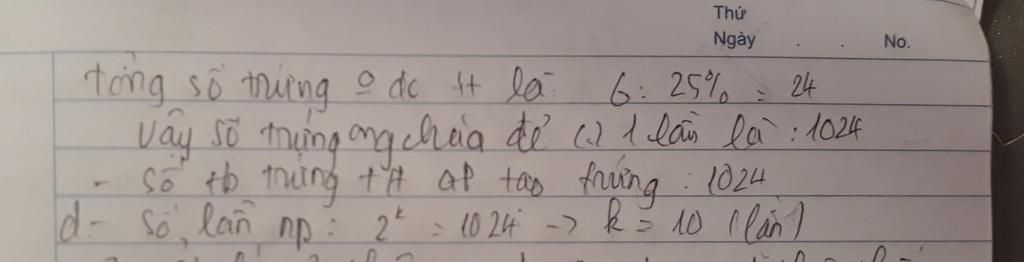 Thứ
Ngày . . No.
tổng số trứng o đc tt là 6 : 25% = 24
Vậy số trứng ong chúa đẻ 1 lần là : 1024
- Số tb trứng tH GP tạo trứng : 1024
d - Số lần np : 2^k = 1024 -> k = 10 (lần)